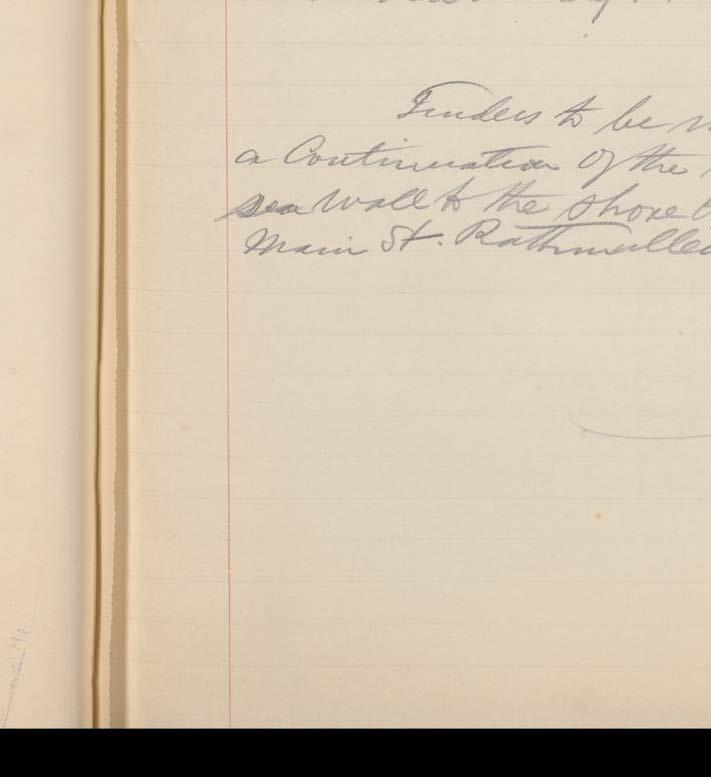 Tenders to be
a Continuation of the
sea Wall to the shore
Main St. Rathmullen